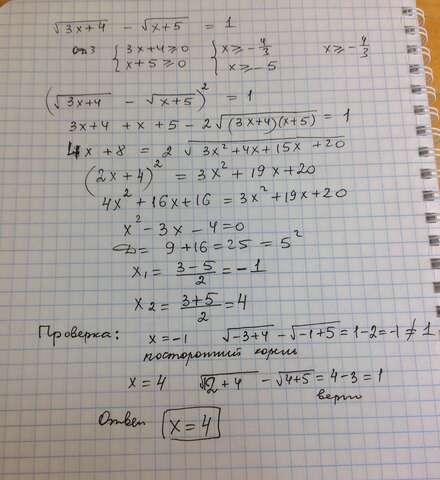 √3x+4 - √x+5 = 1
одз { 3x+4≥0 { x≥-4/3 x≥-4/3
{ x+5≥0 { x≥-5
(√3x+4 - √x+5)² = 1
3x+4 + x+5 - 2√(3x+4)(x+5) = 1
4x + 8 = 2 √3x²+4x+15x+20
(2x+4)² = 3x²+19x+20
4x²+16x+16 = 3x²+19x+20
x² - 3x - 4 = 0
D = 9+16 = 25 = 5²
x₁ = (3-5)/2 = -1
x₂ = (3+5)/2 = 4
Проверка: x=-1 √-3+4 - √-1+5 = 1-2 = -1 ≠ 1
посторонний корень
x = 4 √12+4 - √4+5 = 4-3 = 1
верно
Ответ x = 4